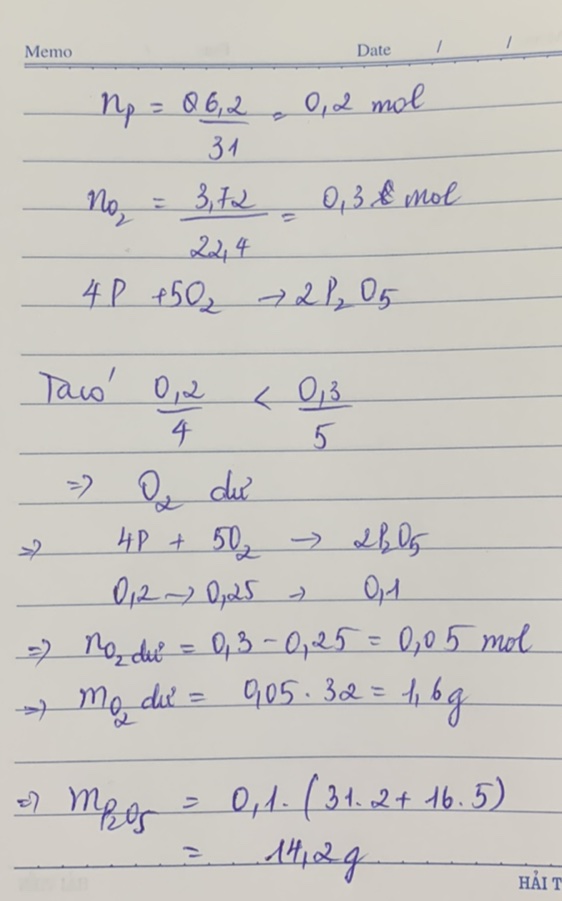 Memo Date / /
n_P = 6,2/31 = 0,2 mol
n_O₂ = 3,72/22,4 = 0,3 mol
4P + 5O₂ → 2P₂O₅
Ta có 0,2/4 < 0,3/5
=> O₂ dư
=> 4P + 5O₂ → 2P₂O₅
0,2 → 0,25 → 0,1
=> n_O₂ dư = 0,3 - 0,25 = 0,05 mol
=> m_O₂ dư = 0,05 . 32 = 1,6g
=> m_P₂O₅ = 0,1 . (31.2 + 16.5)
= 14,2g
HẢI T